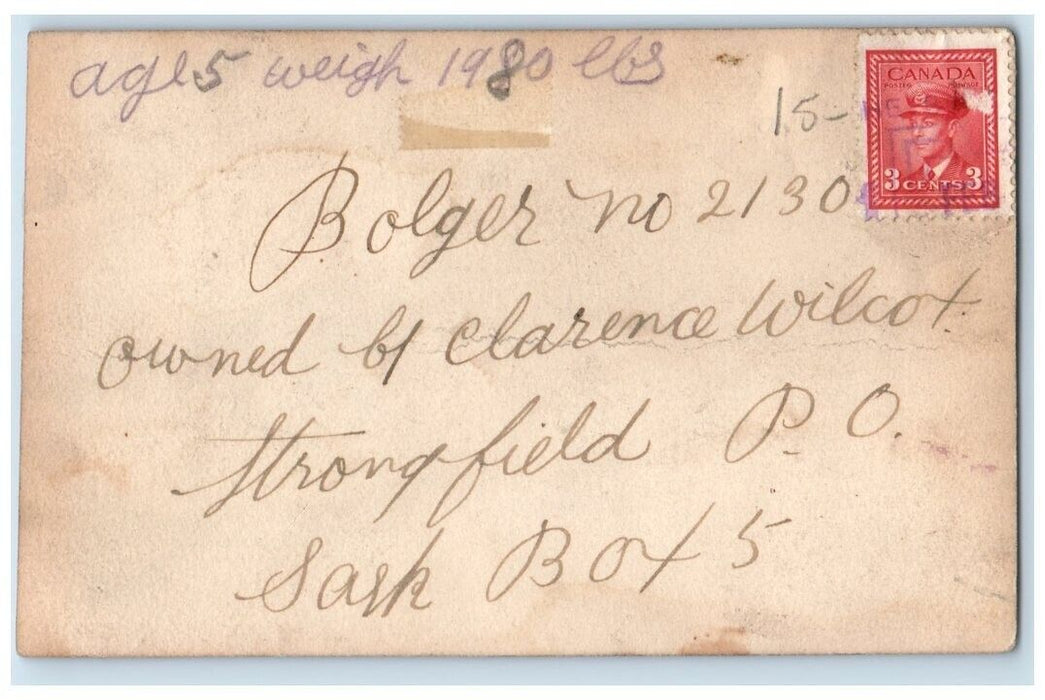 age 5 weigh 1980 lbs
15-
CANADA
POSTES POSTAGE
3 CENTS 3
Bolger no 2130
owned by Clarence Wilcox.
Strongfield P. O.
Sask Box 5